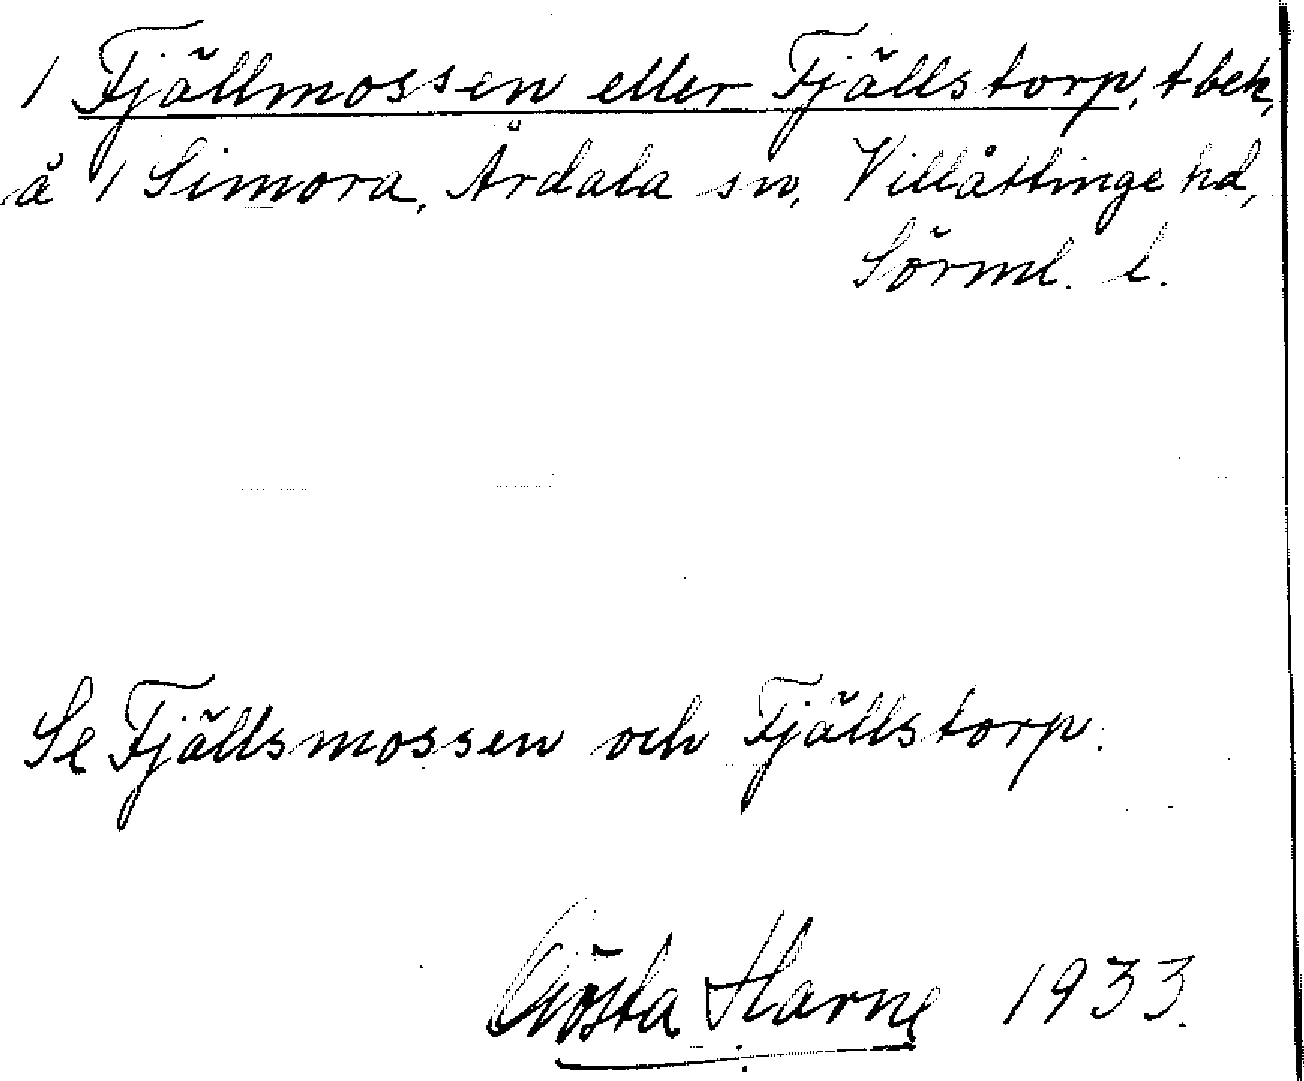 1 Fjällmossen eller Fjällstorp, t bek,
å 1 Simora, Årdala sn, Villåttinge hd,
Sörml. l.
Se Fjällsmossen och Fjällstorp.
Gösta Harne 1933.